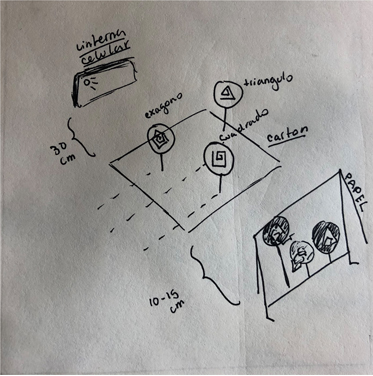 linterna
celular
triangulo
exagono
cuadrado
carton
30
cm
PAPEL
10-15
cm